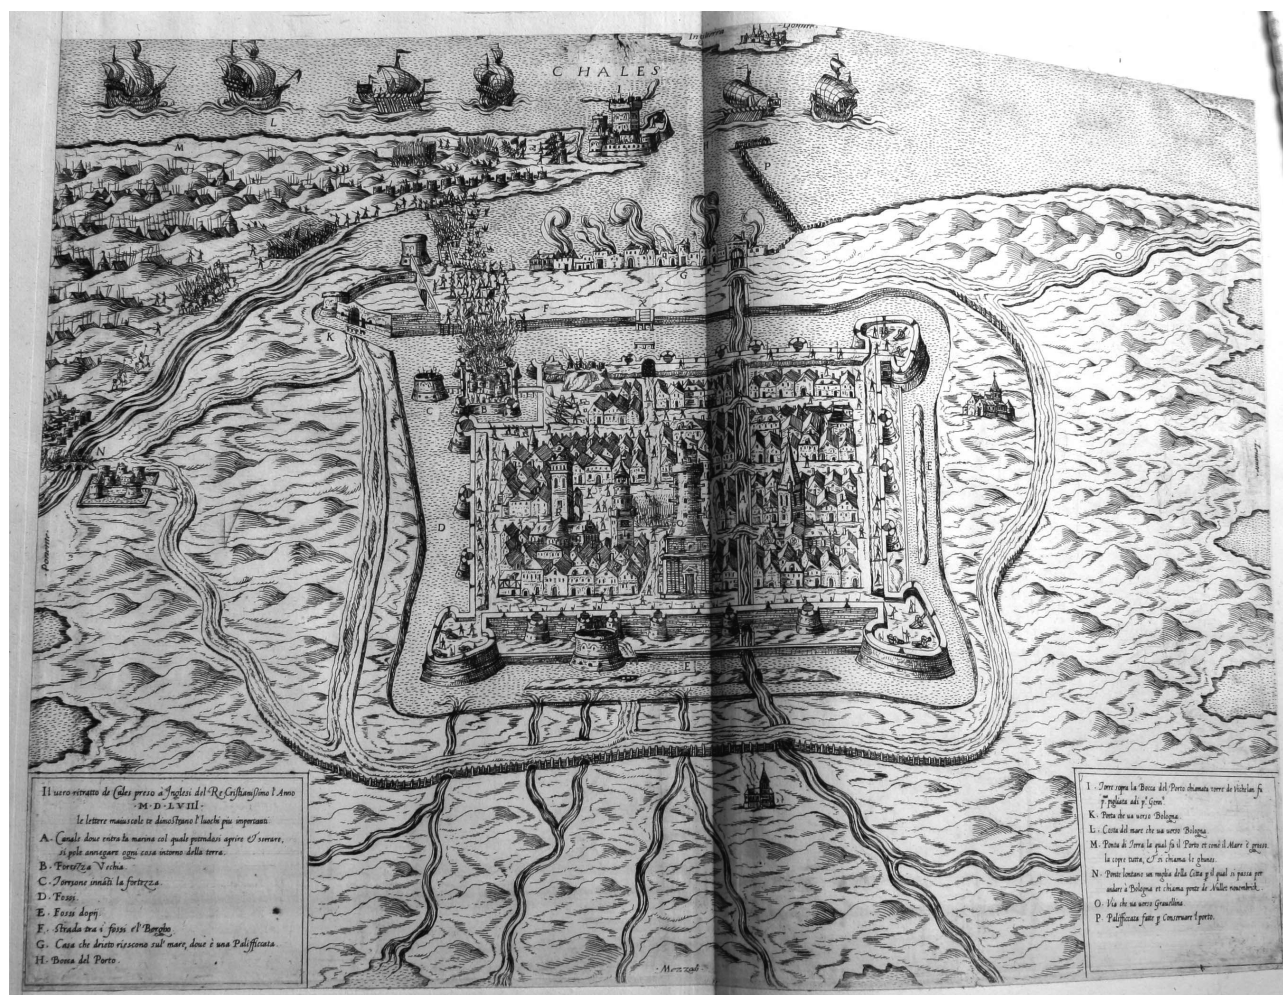 CHALES
L
M
H
P
I
O
G
F
K
C
N
E
D
Q
E
Ponente
Levante
Mezzodi
Il uero ritratto de Cales preso à Inglesi del Re Cristianissimo l'Anno
· M · D · LVIII ·
le lettere maiuscole te dimostrano l'luochi piu importanti
A · Canale doue entra la marina col quale potendosi aprire et serrare,
si pole annegare ogni cosa intorno della terra.
B · Fortezza Vechia.
C · Torrione innāti la fortezza.
D · Fossi.
E · Fossi dopij
F · Strada tra i fossi e'l Borgho
G · Case che drieto riescono sul' mare, doue è una Palifficata.
H · Bocca del Porto.
I · Torre sopra la Bocca del Porto chiamata torre de
pigliata adi
K · Porta che ua uerso Bologna.
L · Costa del mare che ua uerso Bologna.
M · Ponta di Terra la qual fa il Porto et come il Mare è grosso
la copre tutta, et si chiama le dunes.
N · Ponte lontano un miglia della Citta p il qual si passa per
andare à Bologna et chiama ponte de
O · Via che ua uerso Grauellina.
P · Palifficata fatta p Conseruare l porto.